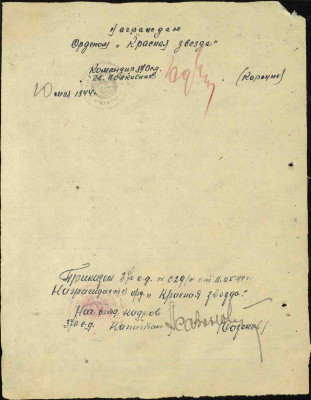 Награждаю
Орденом „Красная звезда“
Командир 37 о.д.
гв. полковник (Короткие)
10 мая 1944 г.
Приказом 37го с.д. № 029/н от 11.05.44 г.
Награждается орд. „Красная звезда“.
Нач. отд. кадров
37го с.д. Капитан (Сазонов)